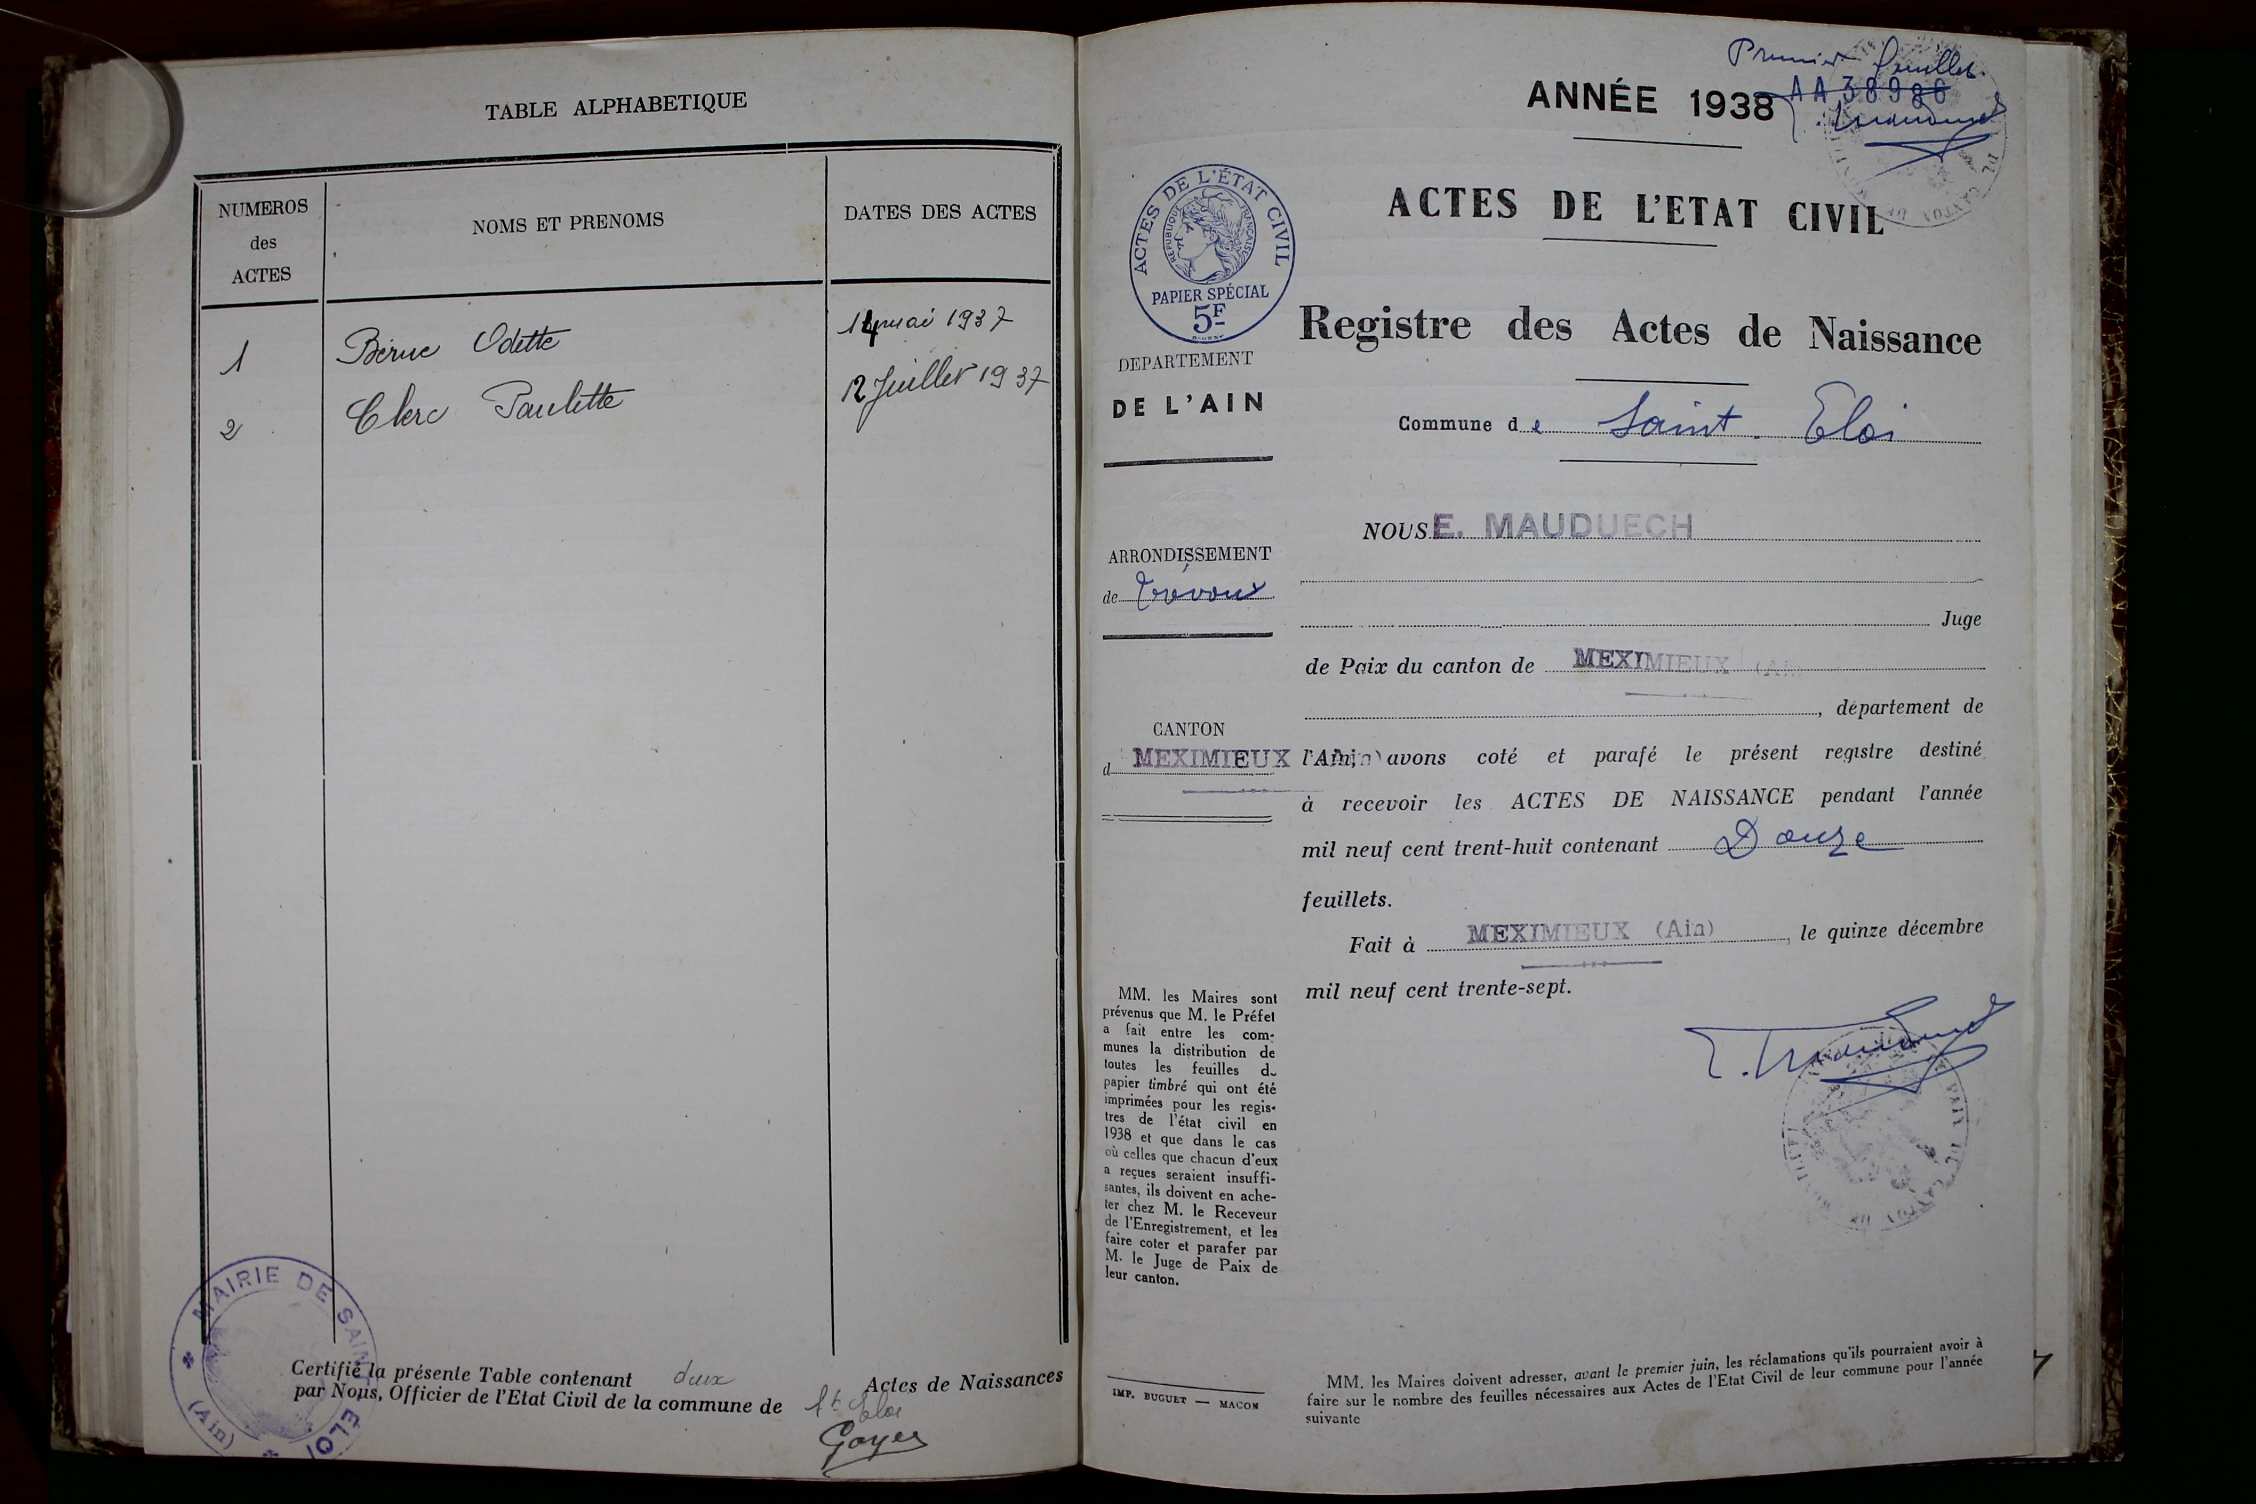 TABLE ALPHABETIQUE
NUMEROS
des
ACTES
NOMS ET PRENOMS
DATES DES ACTES
1
Bérue Odette
14 mai 1937
2
Clerc Paulette
12 Juillet 1937
MAIRIE DE SAINT ELOI
(Ain)
Certifié la présente Table contenant deux Actes de Naissances
par Nous, Officier de l'Etat Civil de la commune de St Eloi
Goyer
Premier feuillet
ANNÉE 1938
ACTES DE L'ÉTAT CIVIL
REPUBLIQUE FRANÇAISE
PAPIER SPÉCIAL
5F
ACTES DE L'ETAT CIVIL
Registre des Actes de Naissance
DEPARTEMENT
DE L'AIN
Commune de Saint. Eloi
ARRONDISSEMENT
de Trévoux
CANTON
d MEXIMIEUX
NOUS E. MAUDUECH
Juge
de Paix du canton de MEXIMIEUX (Ain)
, département de
l'Ain, avons coté et parafé le présent registre destiné
à recevoir les ACTES DE NAISSANCE pendant l'année
mil neuf cent trent-huit contenant Douze
feuillets.
Fait à MEXIMIEUX (Ain), le quinze décembre
mil neuf cent trente-sept.
MM. les Maires sont
prévenus que M. le Préfet
a fait entre les com-
munes la distribution de
toutes les feuilles du
papier timbré qui ont été
imprimées pour les regis-
tres de l'état civil en
1938 et que dans le cas
où celles que chacun d'eux
a reçues seraient insuffi-
santes, ils doivent en ache-
ter chez M. le Receveur
de l'Enregistrement, et les
faire coter et parafer par
M. le Juge de Paix de
leur canton.
IMP. BUGUET — MACON
MM. les Maires doivent adresser, avant le premier juin, les réclamations qu'ils pourraient avoir à
faire sur le nombre des feuilles nécessaires aux Actes de l'Etat Civil de leur commune pour l'année
suivante